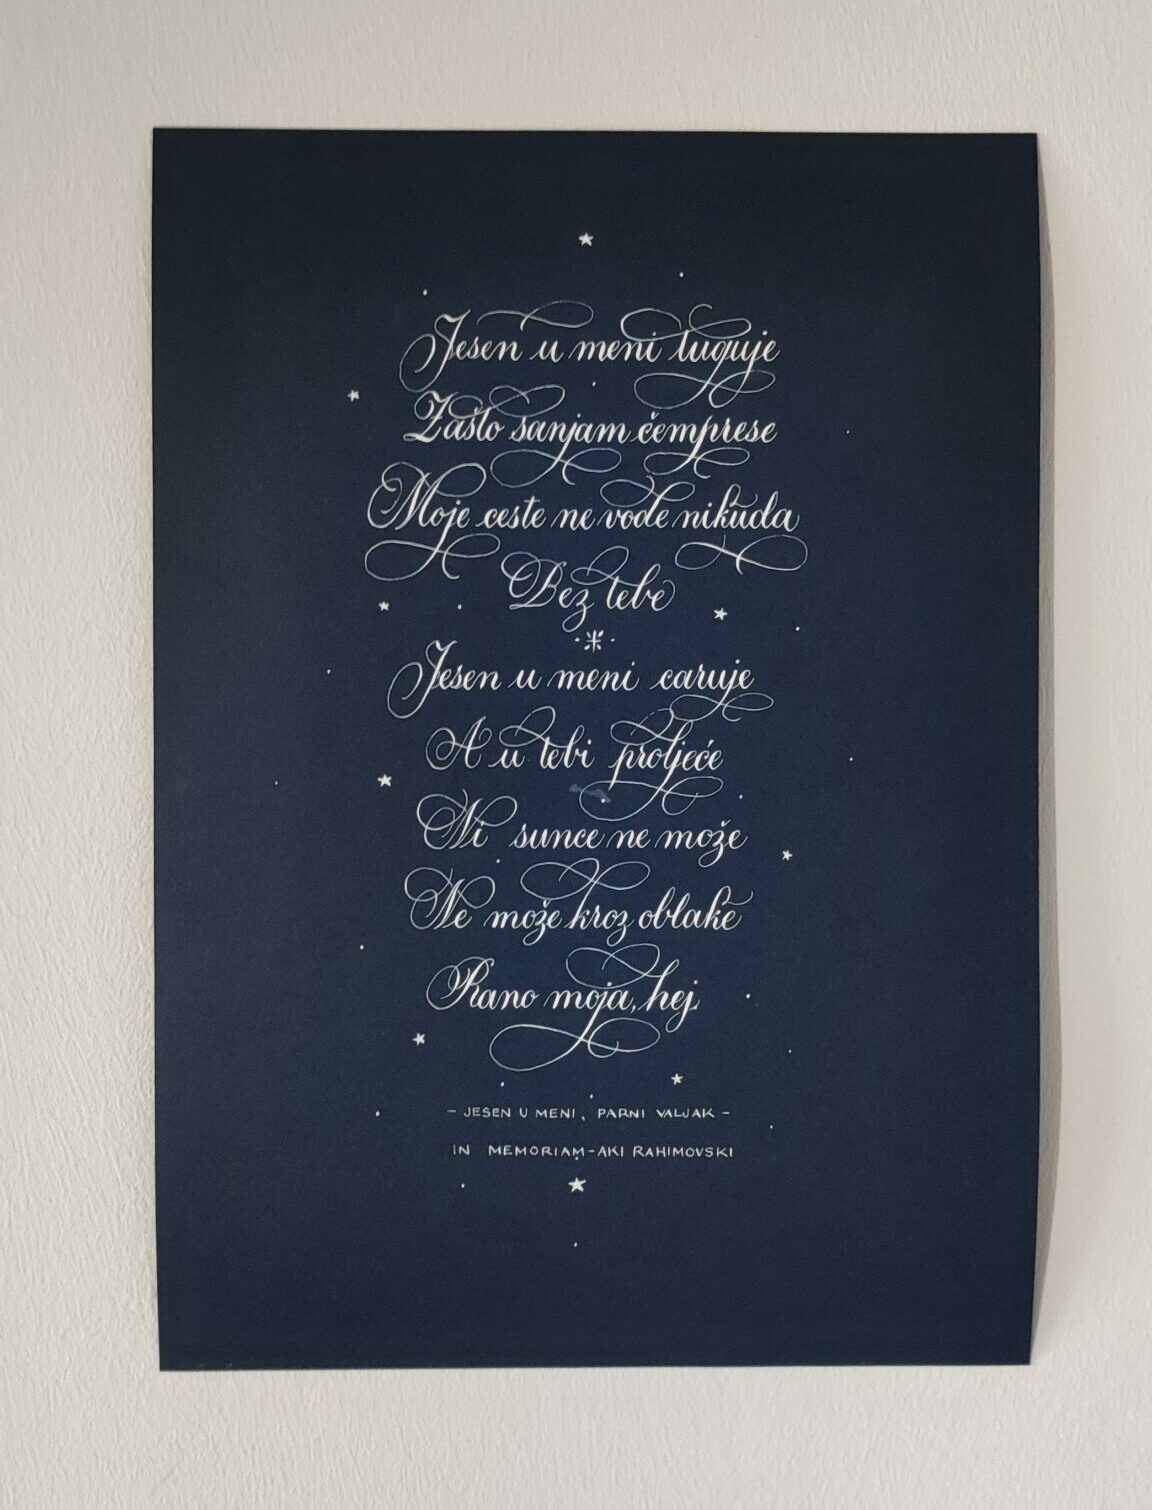 Jesen u meni tuguje
Zašto sanjam čemprese
Moje ceste ne vode nikuda
Bez tebe
Jesen u meni caruje
A u tebi proljeće
Ni sunce ne može
Ne može kroz oblake
Rano moja, hej
- JESEN U MENI, PARNI VALJAK -
IN MEMORIAM - AKI RAHIMOVSKI